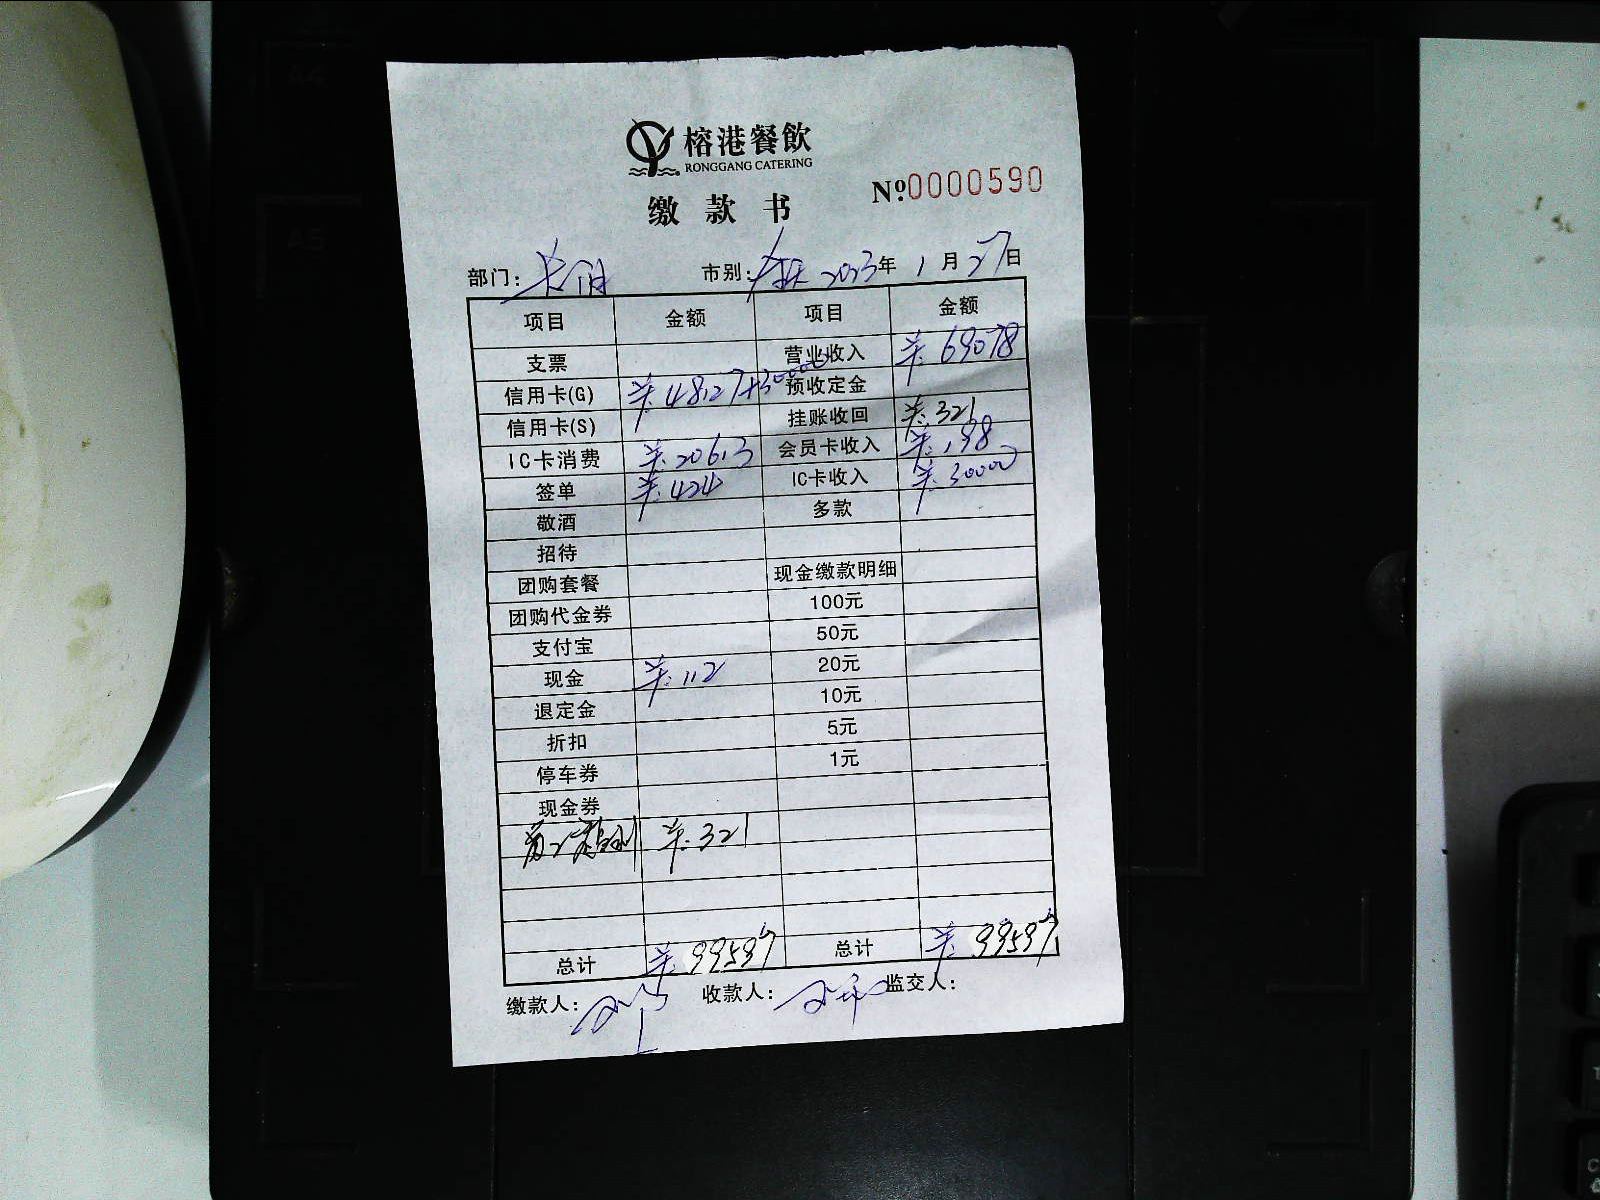 榕港餐飲
RONGGANG CATERING
缴款书
№0000590
部门: 市别: 2023年1月27日
项目 金额 项目 金额
支票 营业收入 ¥:69078
信用卡(G) ¥:48127+30000 预收定金
信用卡(S) 挂账收回 ¥:321
IC卡消费 ¥:20613 会员卡收入 ¥:198
签单 ¥:424 IC卡收入 ¥:30000
敬酒 多款
招待
团购套餐 现金缴款明细
团购代金券 100元
支付宝 50元
现金 ¥:112 20元
退定金 10元
折扣 5元
停车券 1元
现金券
¥:321
总计 ¥:99597 总计 ¥:99597
缴款人: 收款人: 监交人:
A4
A5